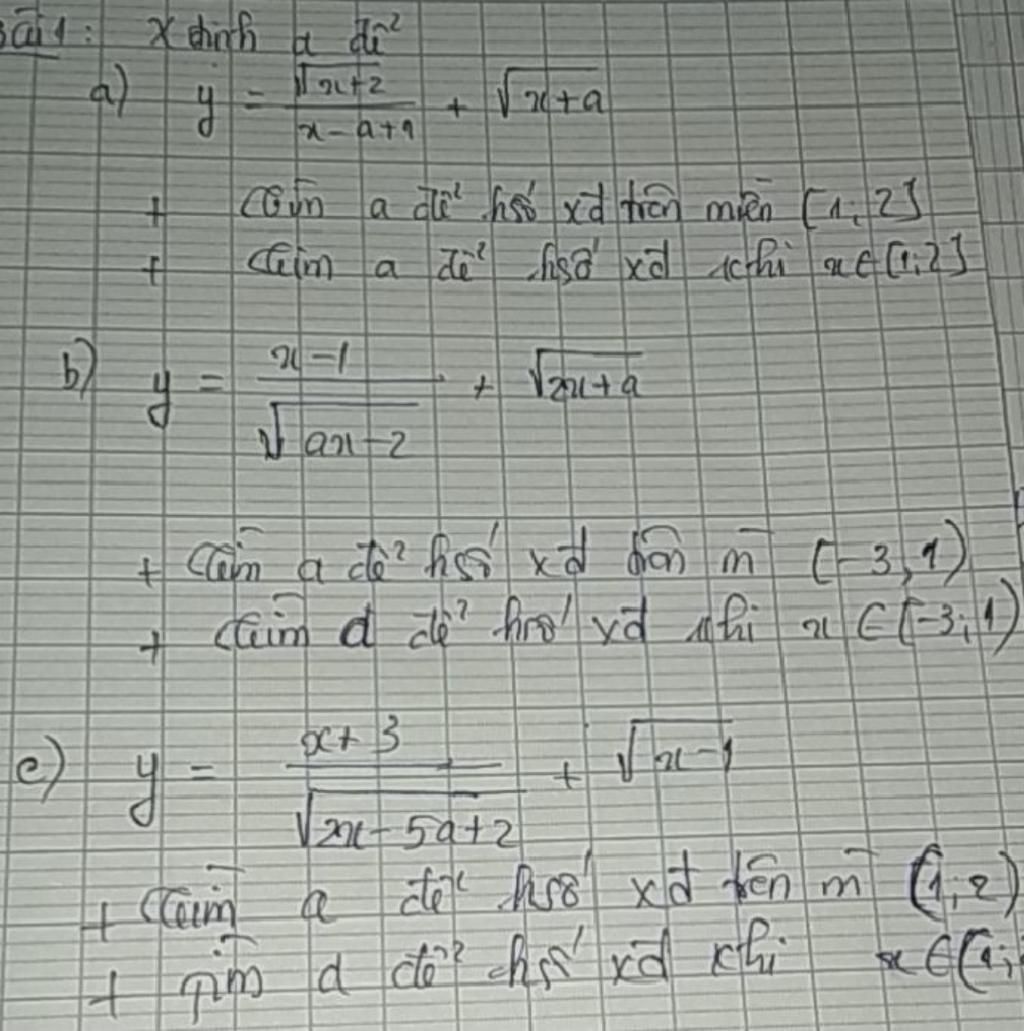 Bài 1: Xđịnh a để
a) y = \frac{\sqrt{x+2}}{x-a+1} + \sqrt{x+a}
+ Tìm a để hsố xđ trên miền [1; 2]
+ Tìm a để hsố xđ khi x ∈ [1; 2]
b) y = \frac{x-1}{\sqrt{ax-2}} + \sqrt{2x+a}
+ Tìm a để hsố xđ trên m (-3, 1)
+ Tìm a để hsố xđ khi x ∈ [-3; 1)
c) y = \frac{x+3}{\sqrt{2x-5a+2}} + \sqrt{x-1}
+ Tìm a để hsố xđ trên m (1; 2)
+ Tìm a để hsố xđ khi x ∈ (1;